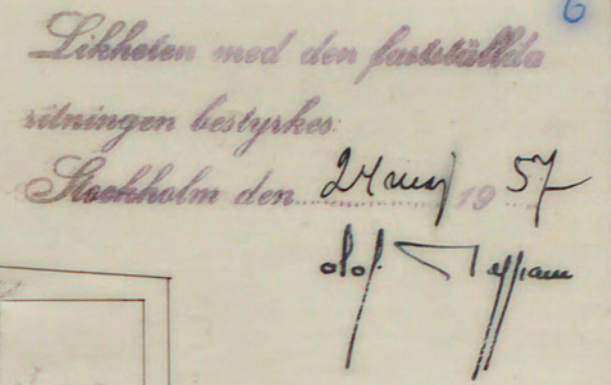 6
Likheten med den fastställda
ritningen bestyrkes:
Stockholm den 24 maj 1957
Olof